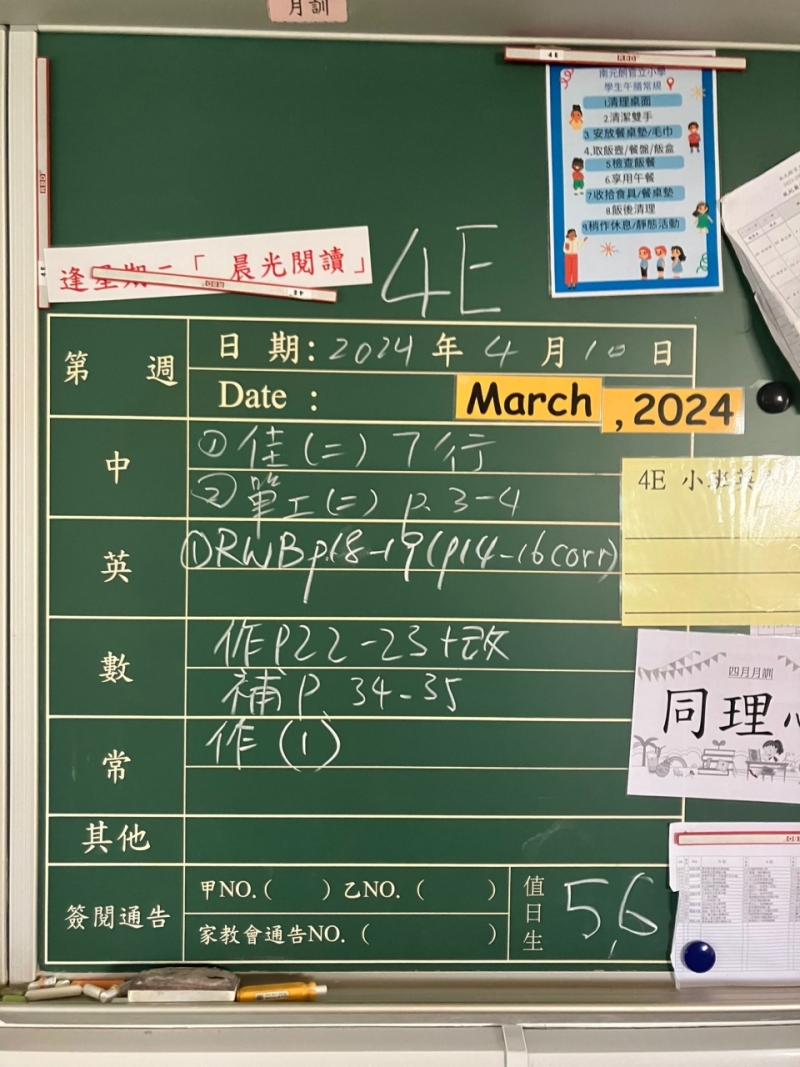 月訓
4E
南元朗官立小學
學生午膳常規
1.清理桌面
2.清潔雙手
3.安放餐桌墊/毛巾
4.取飯壺/餐盤/飯盒
5.檢查飯餐
6.享用午餐
7.收拾食具/餐桌墊
8.飯後清理
9.稍作休息/靜態活動
逢星期二「 晨光閱讀」
4E
第 週
日 期: 2024 年 4 月 10 日
Date :
March
, 2024
中
① 佳(二) 7行
② 單工(二) p. 3-4
4E 小班英
英
① RWB p18-19 (p14-16 corr)
數
作 P22-23+改
補 P. 34-35
四月月訓
同理心
常
作 (1)
其他
簽閱通告
甲NO. ( ) 乙NO. ( )
家教會通告NO. ( )
值日生
5,6